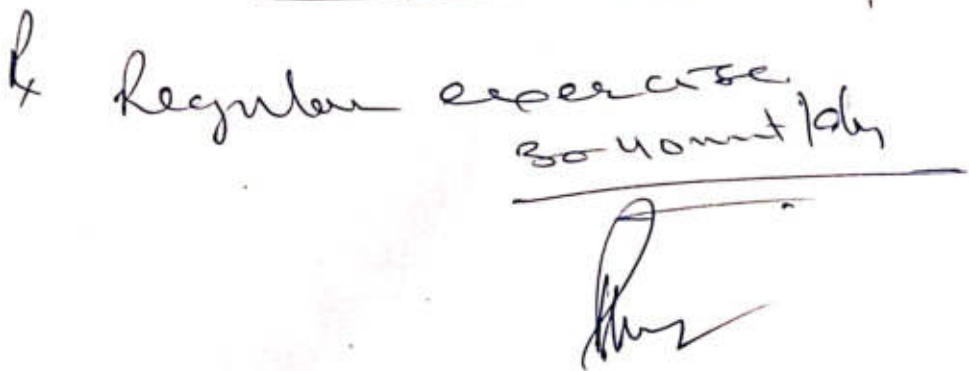 Rx Regular exercise
30-40 mnt/day